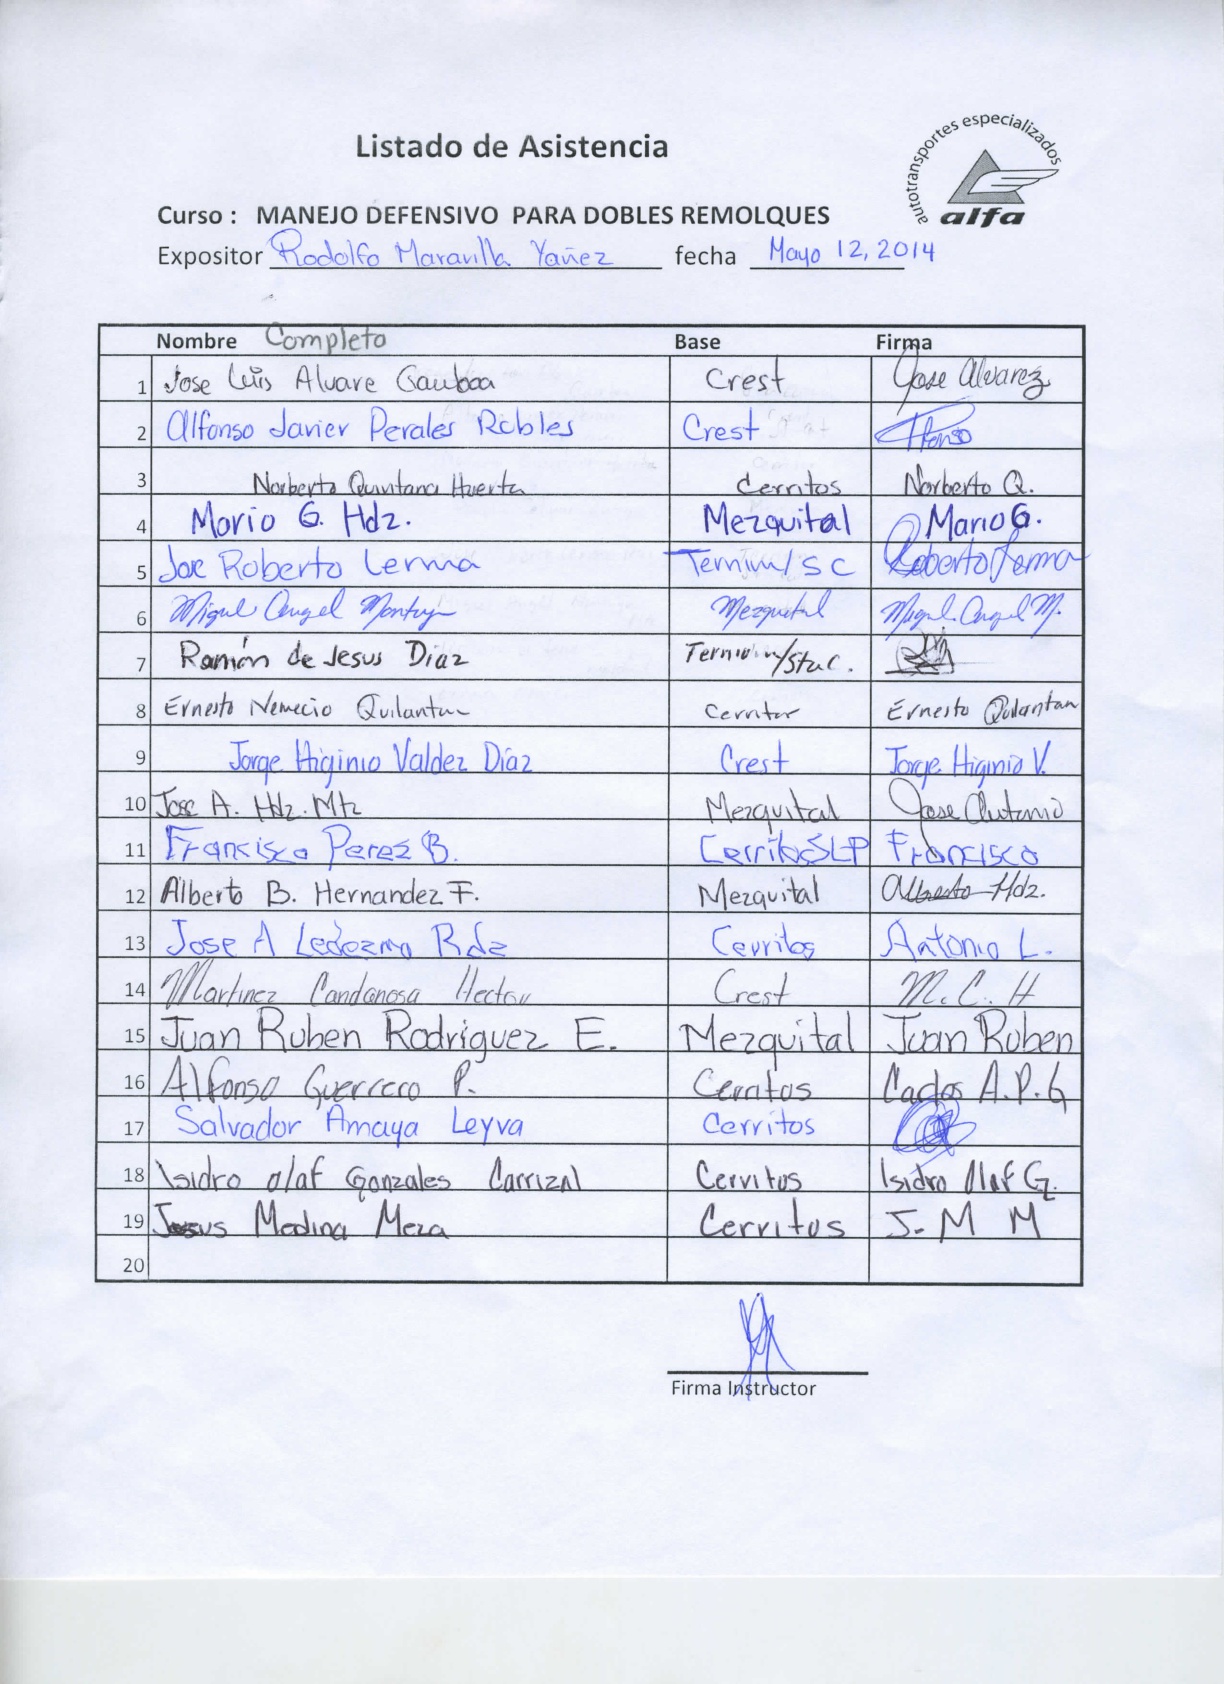 autotransportes especializados
alfa
Listado de Asistencia
Curso : MANEJO DEFENSIVO PARA DOBLES REMOLQUES
Expositor Rodolfo Maravilla Yañez fecha Mayo 12, 2014
Nombre Completo Base Firma
1 Jose Luis Alvare Gamboa Crest Jose Alvarez
2 Alfonso Javier Perales Robles Crest
3 Norberto Quintana Huerta Cerritos Norberto Q.
4 Mario G. Hdz. Mezquital Mario G.
5 Jose Roberto Lerma Ternium/S C Roberto Lerma
6 Miguel Angel Mezquital Miguel Angel M.
7 Ramón de Jesus Diaz
8 Ernesto Nemecio Quilantan Ernesto Quilantan
9 Jorge Higinio Valdez Díaz Crest Jorge Higinio V.
10 Jose A. Hdz. Mtz Mezquital Jose Antonio
11 Francisco Perez B. Cerritos SLP Francisco
12 Alberto B. Hernandez F. Mezquital Alberto Hdz.
13 Jose A Ledezma Rdz Cerritos Antonio L.
14 Martinez Candanosa Hector Crest M. C. H
15 Juan Ruben Rodriguez E. Mezquital Juan Ruben
16 Alfonso Guerrero P. Cerritos Carlos A. P. G
17 Salvador Amaya Leyva Cerritos
18 Isidro olaf Gonzales Carrizal Cerritos Isidro Olaf G.
19 Jesus Medina Meza Cerritos J. M M
20
Firma Instructor